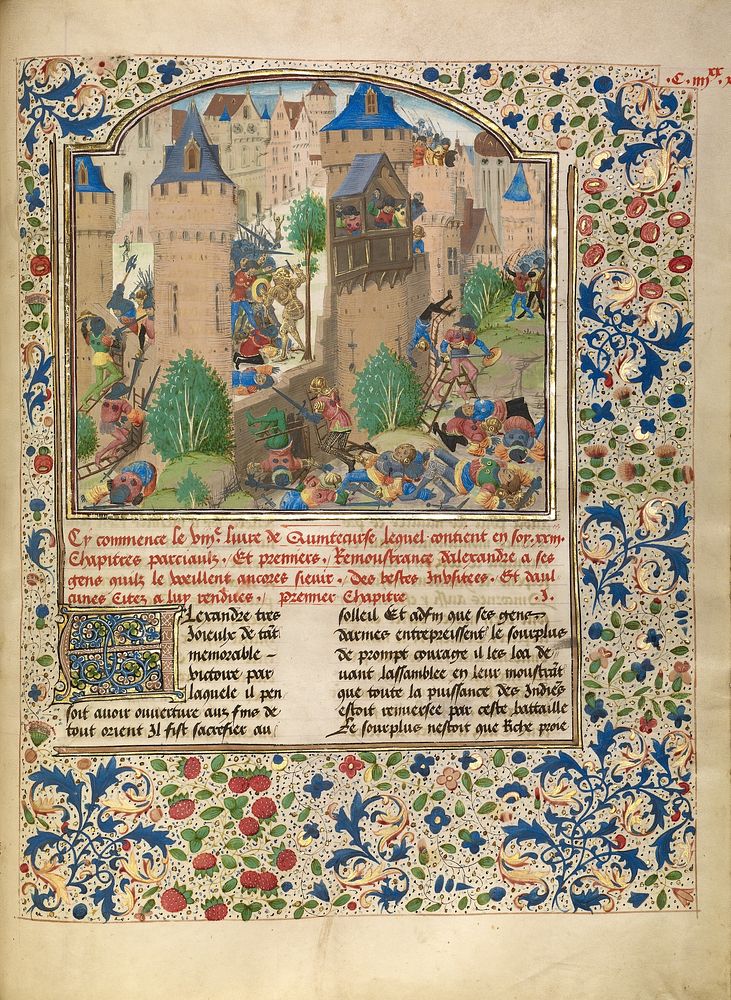 .C. iiij xx x
Cy commence le viiije. livre de Quintecurse lequel contient en soy xxiiij.
Chapitres parciaulx. Et premiers. Remoustrance d'alexandre a ses
gens quilz le vueillent ancores sievir. Des bestes Inusitees. Et daul
cunes Citez a luy rendues. Premier Chapitre .I.
Alexandre tres
Joieulx de tāt
memorable
victoire par
laquele il pen
soit avoir ouverture aux fins de
tout orient Il fist sacrefier au
solleil Et adfin que ses gens
darmes entrepreissent le sourplus
de prompt courage il les loa de
vant lassamblee en leur moustrāt
que toute la puissance des Indiēs
estoit renversee par ceste bataille
Le sourplus nestoit que Riche proie